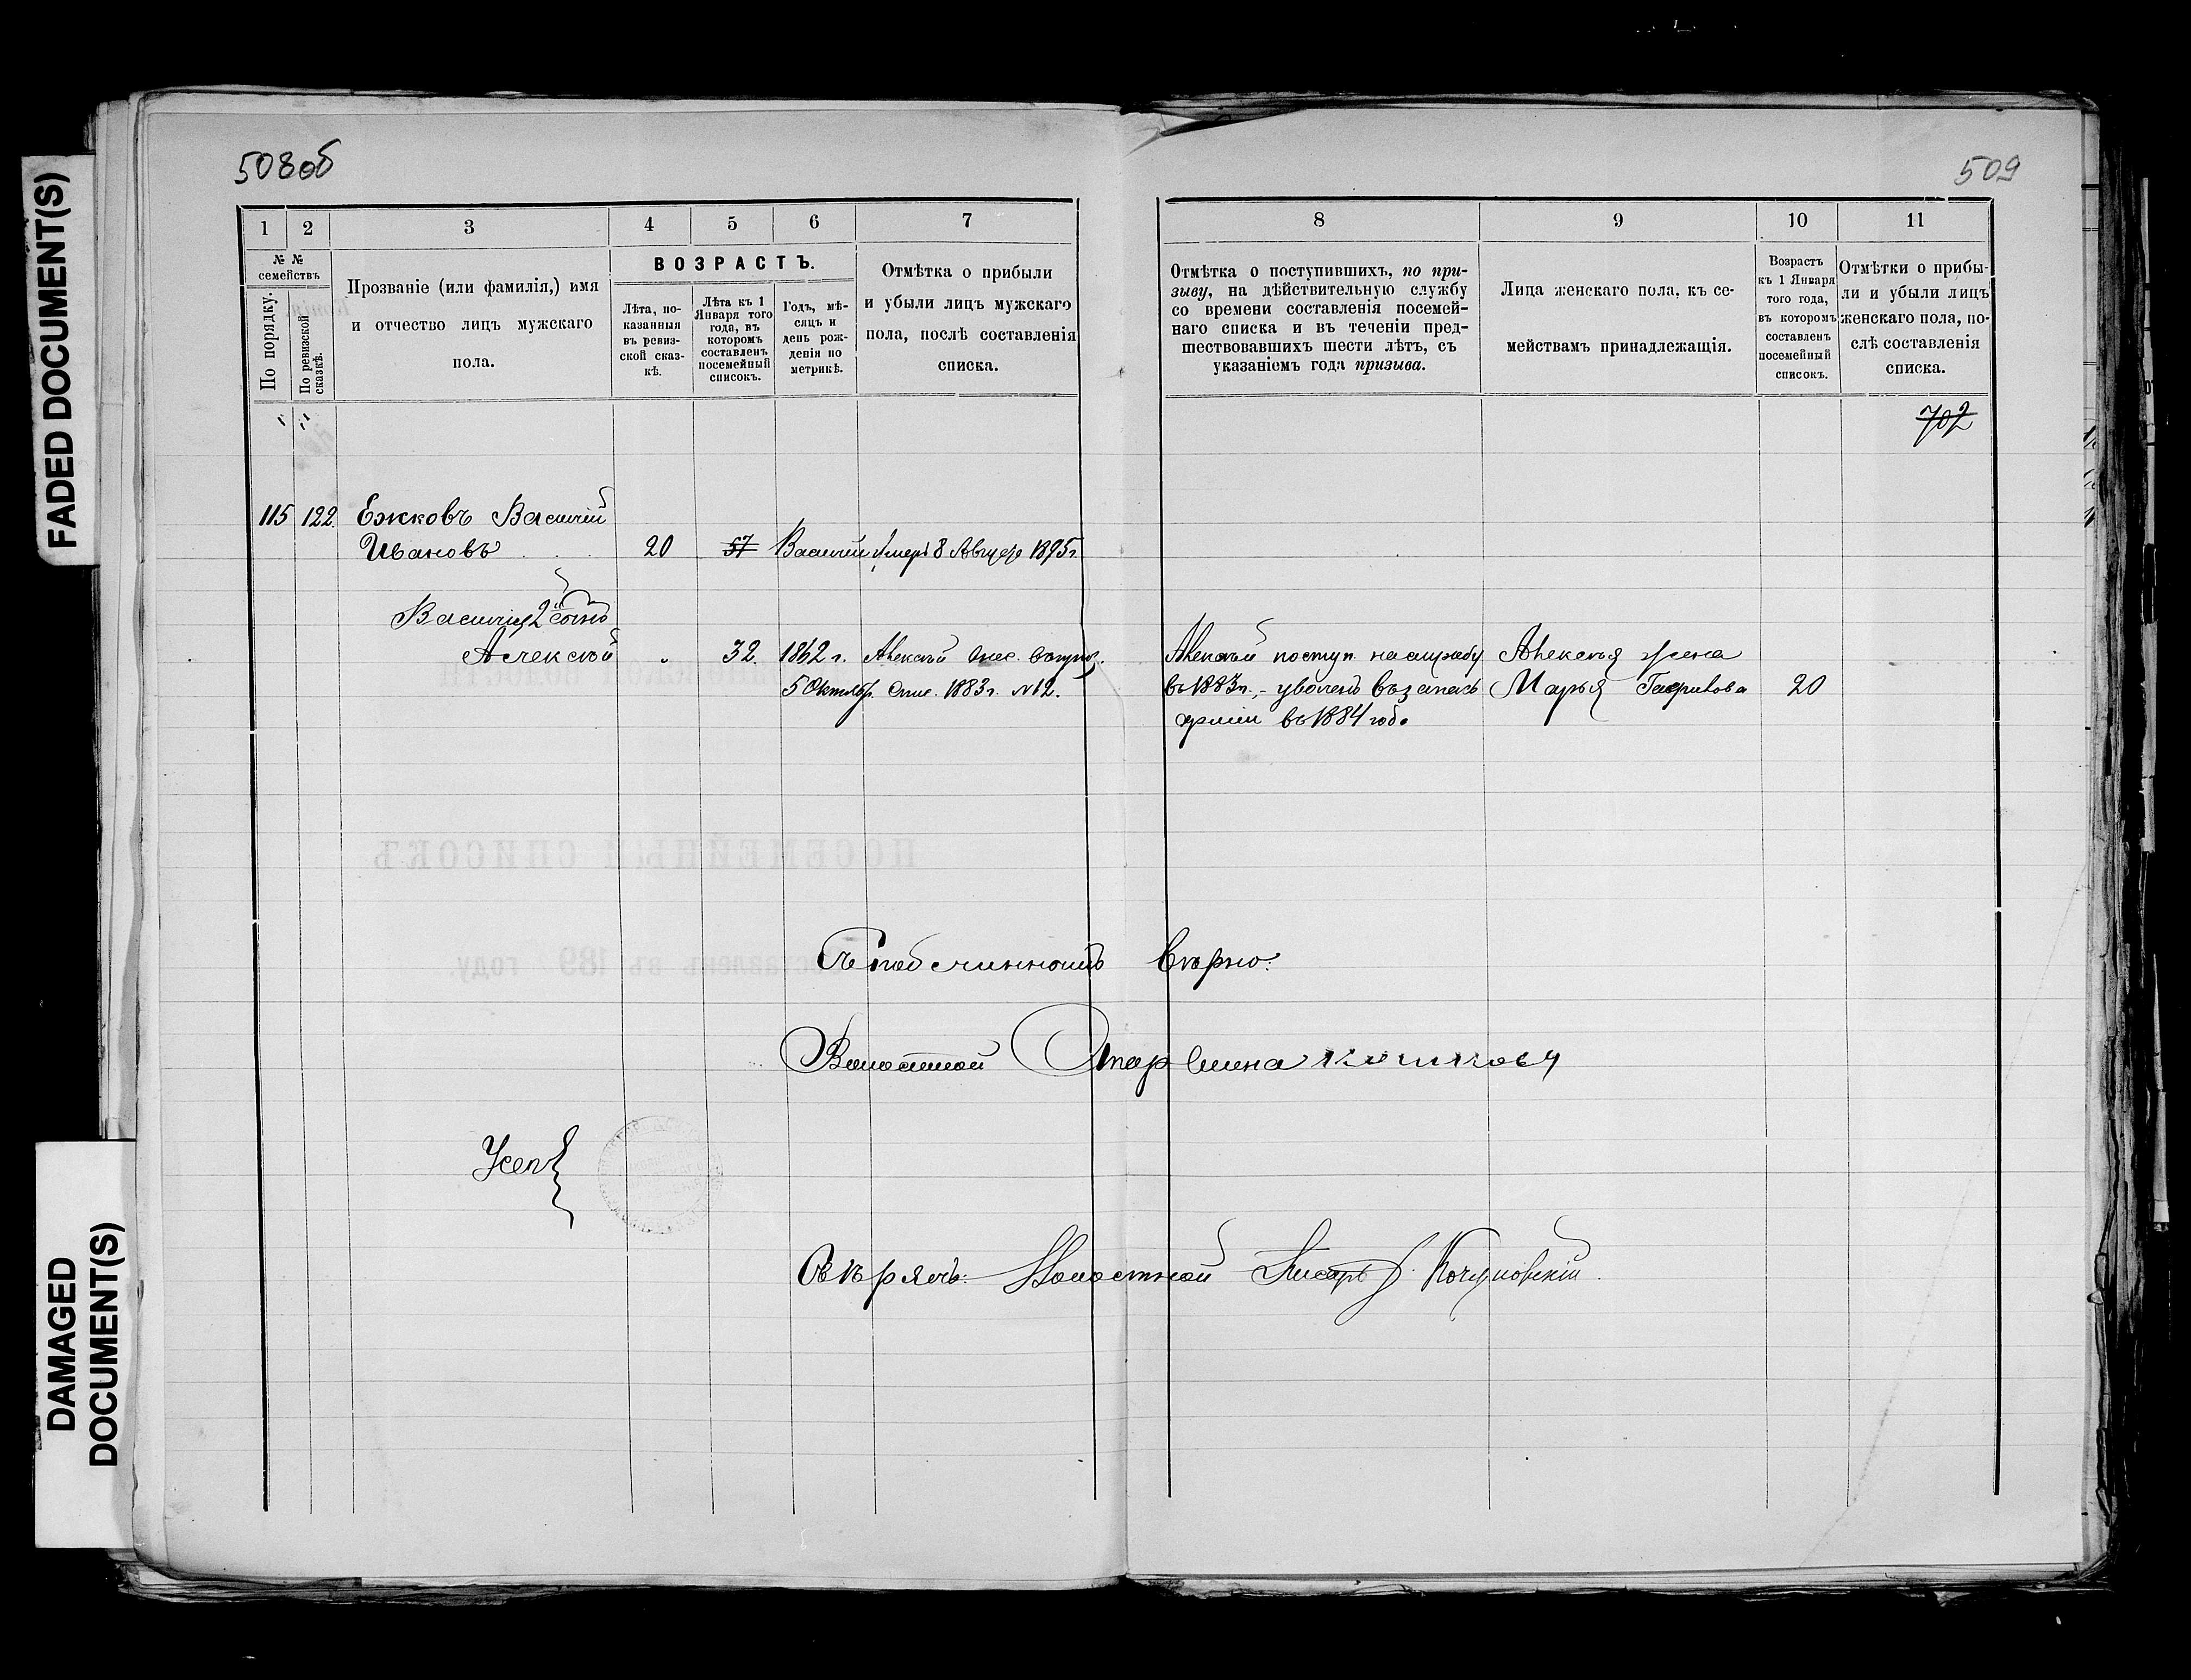 FADED DOCUMENT(S)
DAMAGED
DOCUMENT(S)
508об
509
1 2 3 4 5 6 7
№ №
семействъ
По порядку.
По ревизской
сказкѣ.
Прозваніе (или фамилія,) имя
и отчество лицъ мужскаго
пола.
ВОЗРАСТЪ.
Лѣта, по-
казанныя
въ ревиз-
ской сказ-
кѣ.
Лѣта къ 1
Января того
года, въ
которомъ
составленъ
посемейный
списокъ.
Годъ, мѣ-
сяцъ и
день рож-
денія по
метрикѣ.
Отмѣтка о прибыли
и убыли лицъ мужскаго
пола, послѣ составленія
списка.
8 9 10 11
Отмѣтка о поступившихъ, по при-
зыву, на дѣйствительную службу
со времени составленія посемей-
наго списка и въ теченіи пред-
шествовавшихъ шести лѣтъ, съ
указаніемъ года призыва.
Лица женскаго пола, къ се-
мействамъ принадлежащія.
Возрастъ
къ 1 Января
того года,
въ которомъ
составленъ
посемейный
списокъ.
Отмѣтки о прибы-
ли и убыли лицъ
женскаго пола, по-
слѣ составленія
списка.
702
115 122. Ежковъ Василій
Ивановъ 20 57 Василій умеръ 8 Августа 1895 г.
Василія 2й сынъ
Алексѣй " 32. 1862 г. Алексѣй
5 Октября. 1883 г. №12.
Алексѣй поступ. на службу
въ 1883 г., - уволенъ въ запасъ
арміи въ 1884 году
Алексѣя жена
Марья Гаврилова 20
ПОСЕМЕЙНЫЙ СПИСОКЪ
составленъ въ 189 году.
Съ подлиннымъ вѣрно:
Волостной Старшина
Свѣрялъ: Волостной Писарь